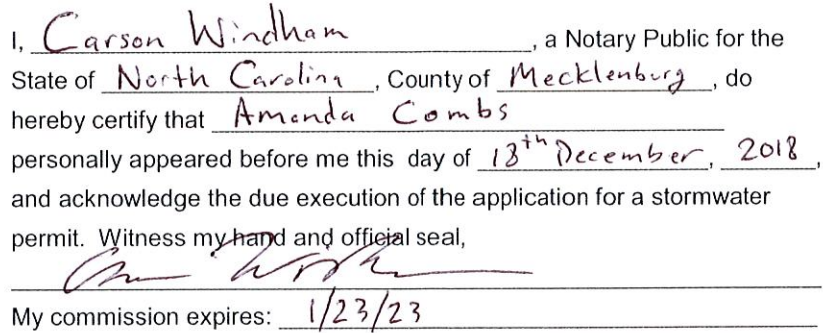 I, Carson Windham, a Notary Public for the
State of North Carolina, County of Mecklenburg, do
hereby certify that Amanda Combs
personally appeared before me this day of 13th December, 2018,
and acknowledge the due execution of the application for a stormwater
permit. Witness my hand and official seal,
My commission expires: 1/23/23